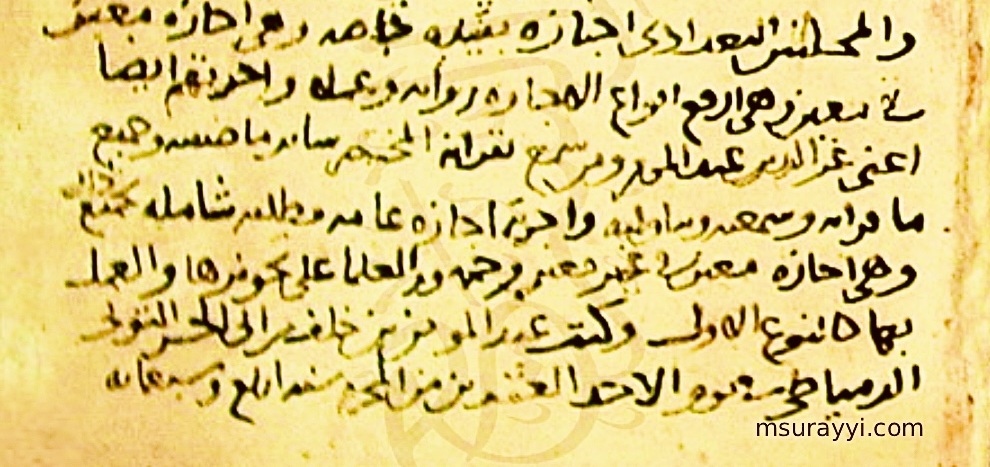 والمجلس البغدادي اجازة مقيده خاصه وهي اجازة معين
في معين وهي ارفع انواع الاجازه روايه وعملا واجزتهم ايضا
اعني عز الدين عبد المومن ومن سمع بقراة سائر ما صنفته وجميع
ما قراته وسمعته واجزته اجازة عامه مطلقه شامله
وهي اجازة معين في غير معين وجمهور العلما على تجويزها والعمل
بها كالنوع الاول وكتب عبد المومن بن خلف بن ابي الحسن التوني
الدمياطي يوم الاحد العشرين من سنه اربع وسبعمايه
msurayyi.com